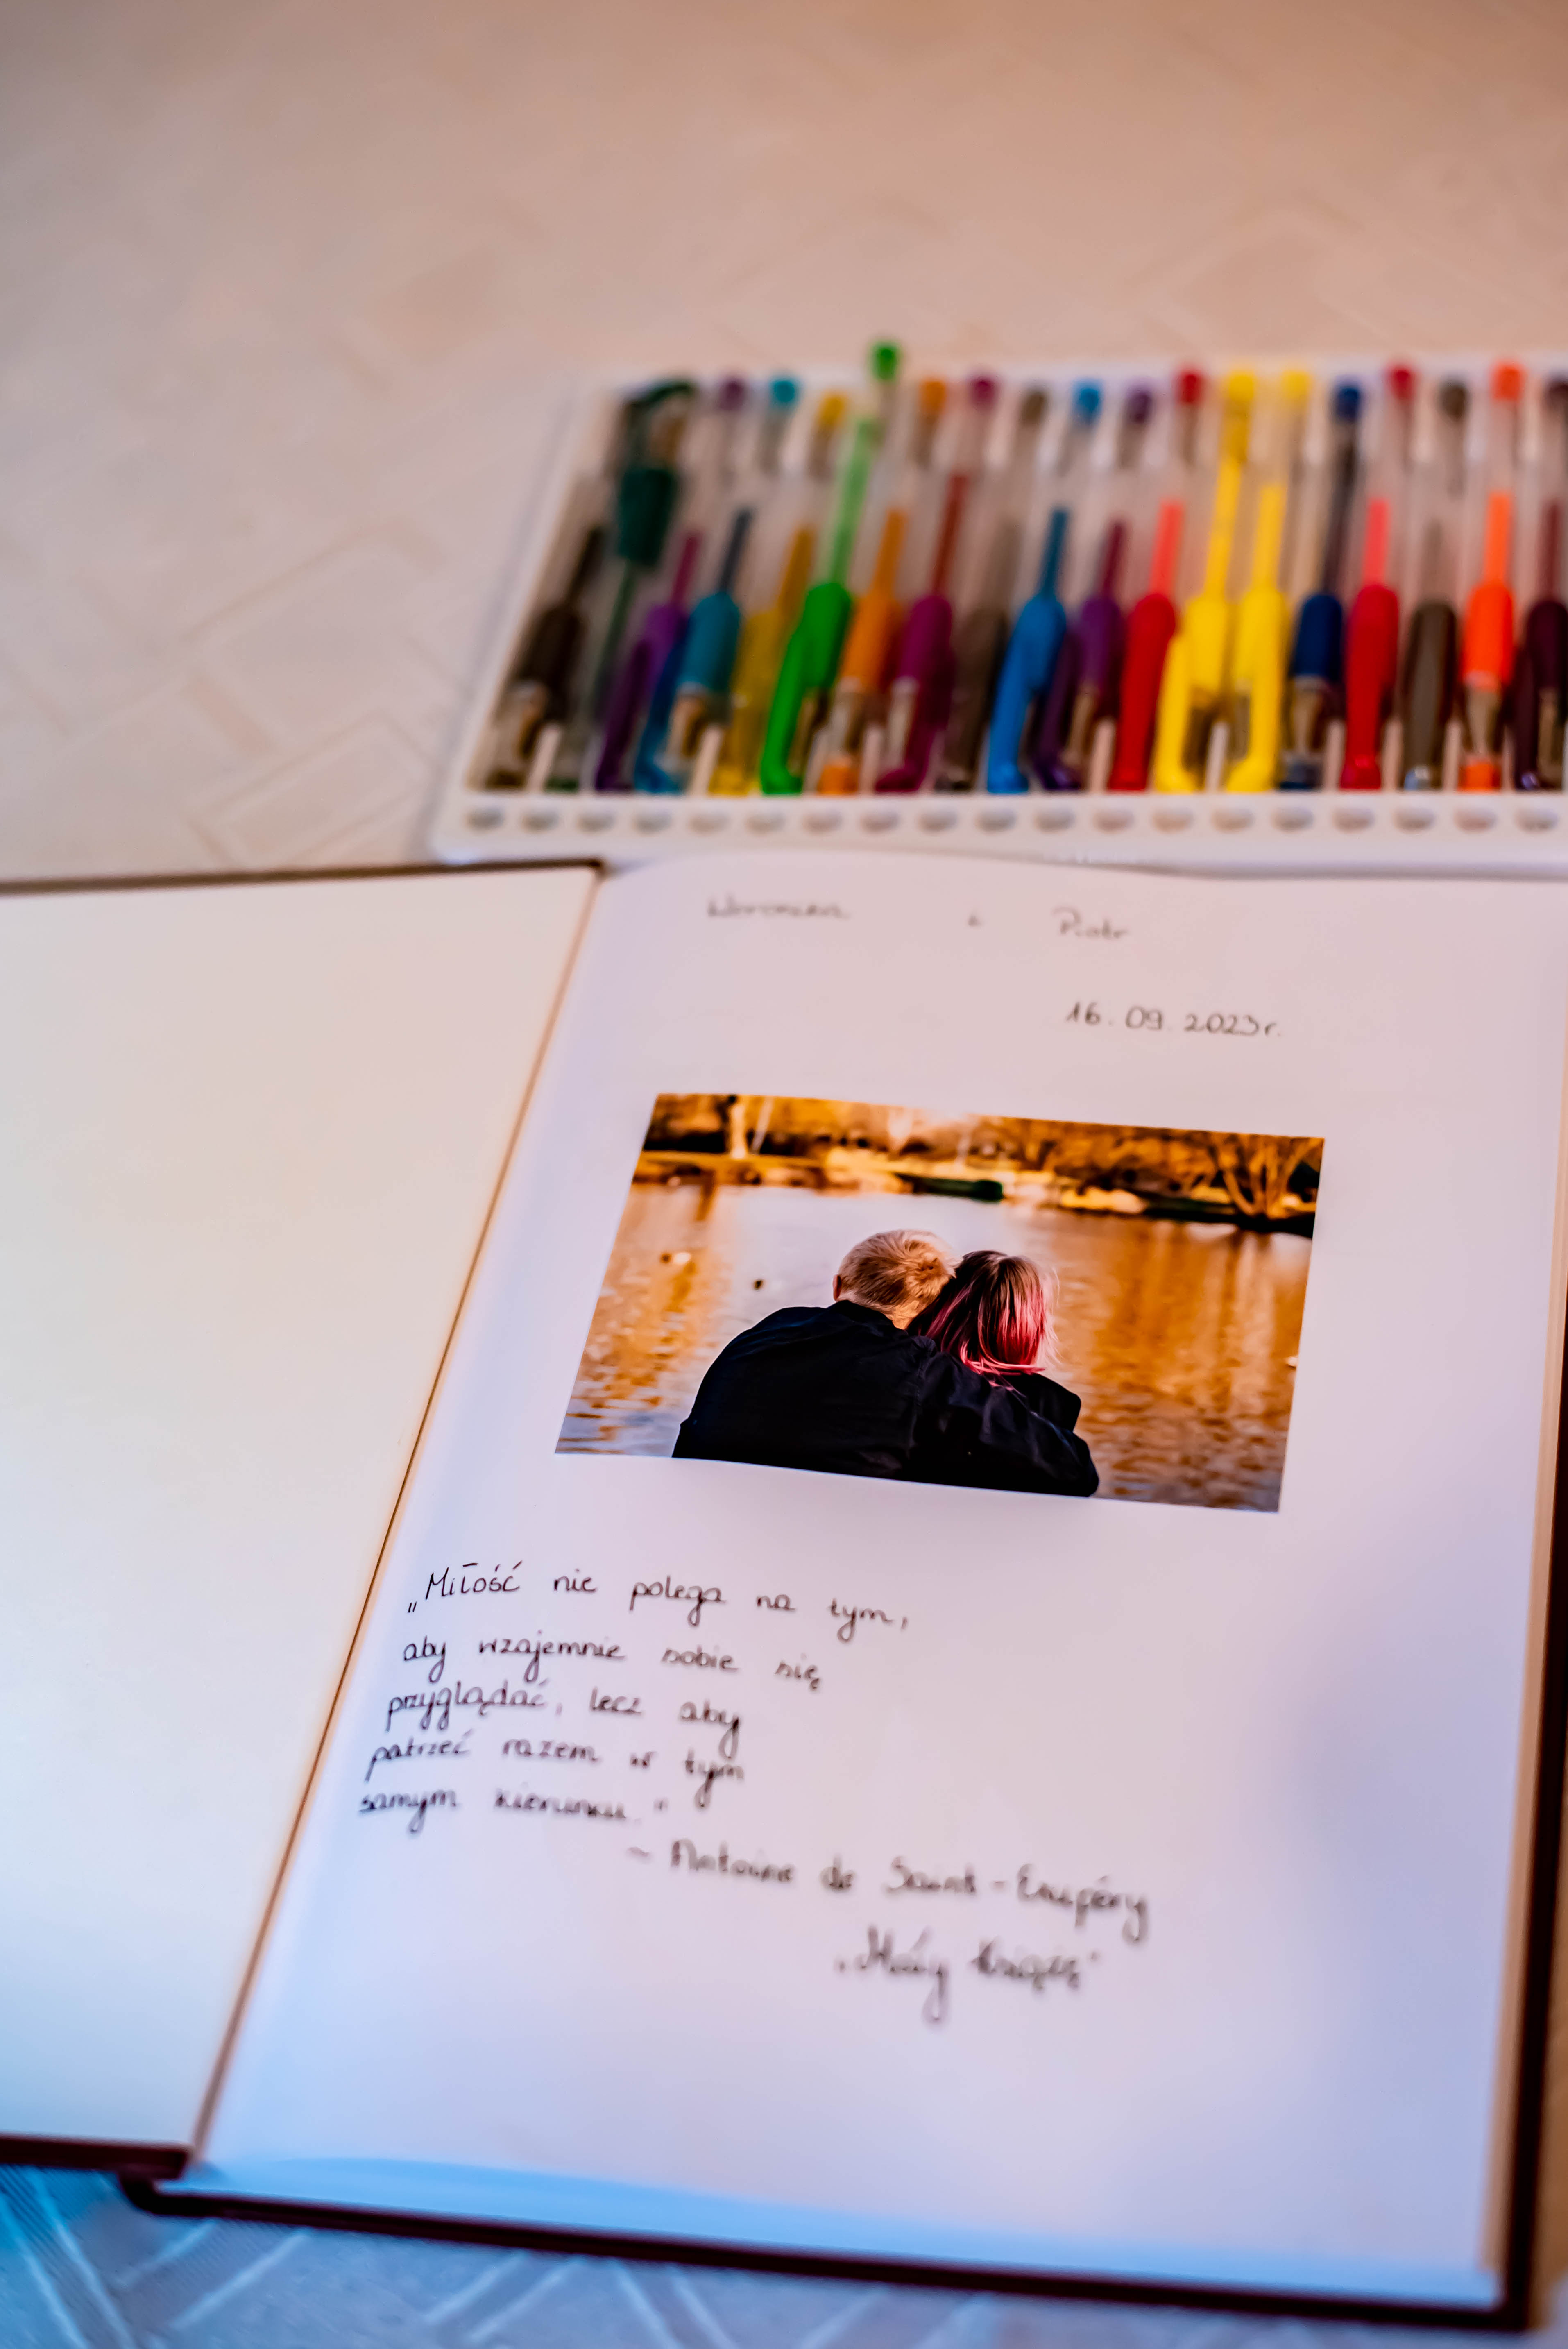 Weronika i Piotr
16.09.2023r.
„Miłość nie polega na tym,
aby wzajemnie sobie się
przyglądać, lecz aby
patrzeć razem w tym
samym kierunku."
~ Antoine de Saint-Exupéry
„Mały Książę"